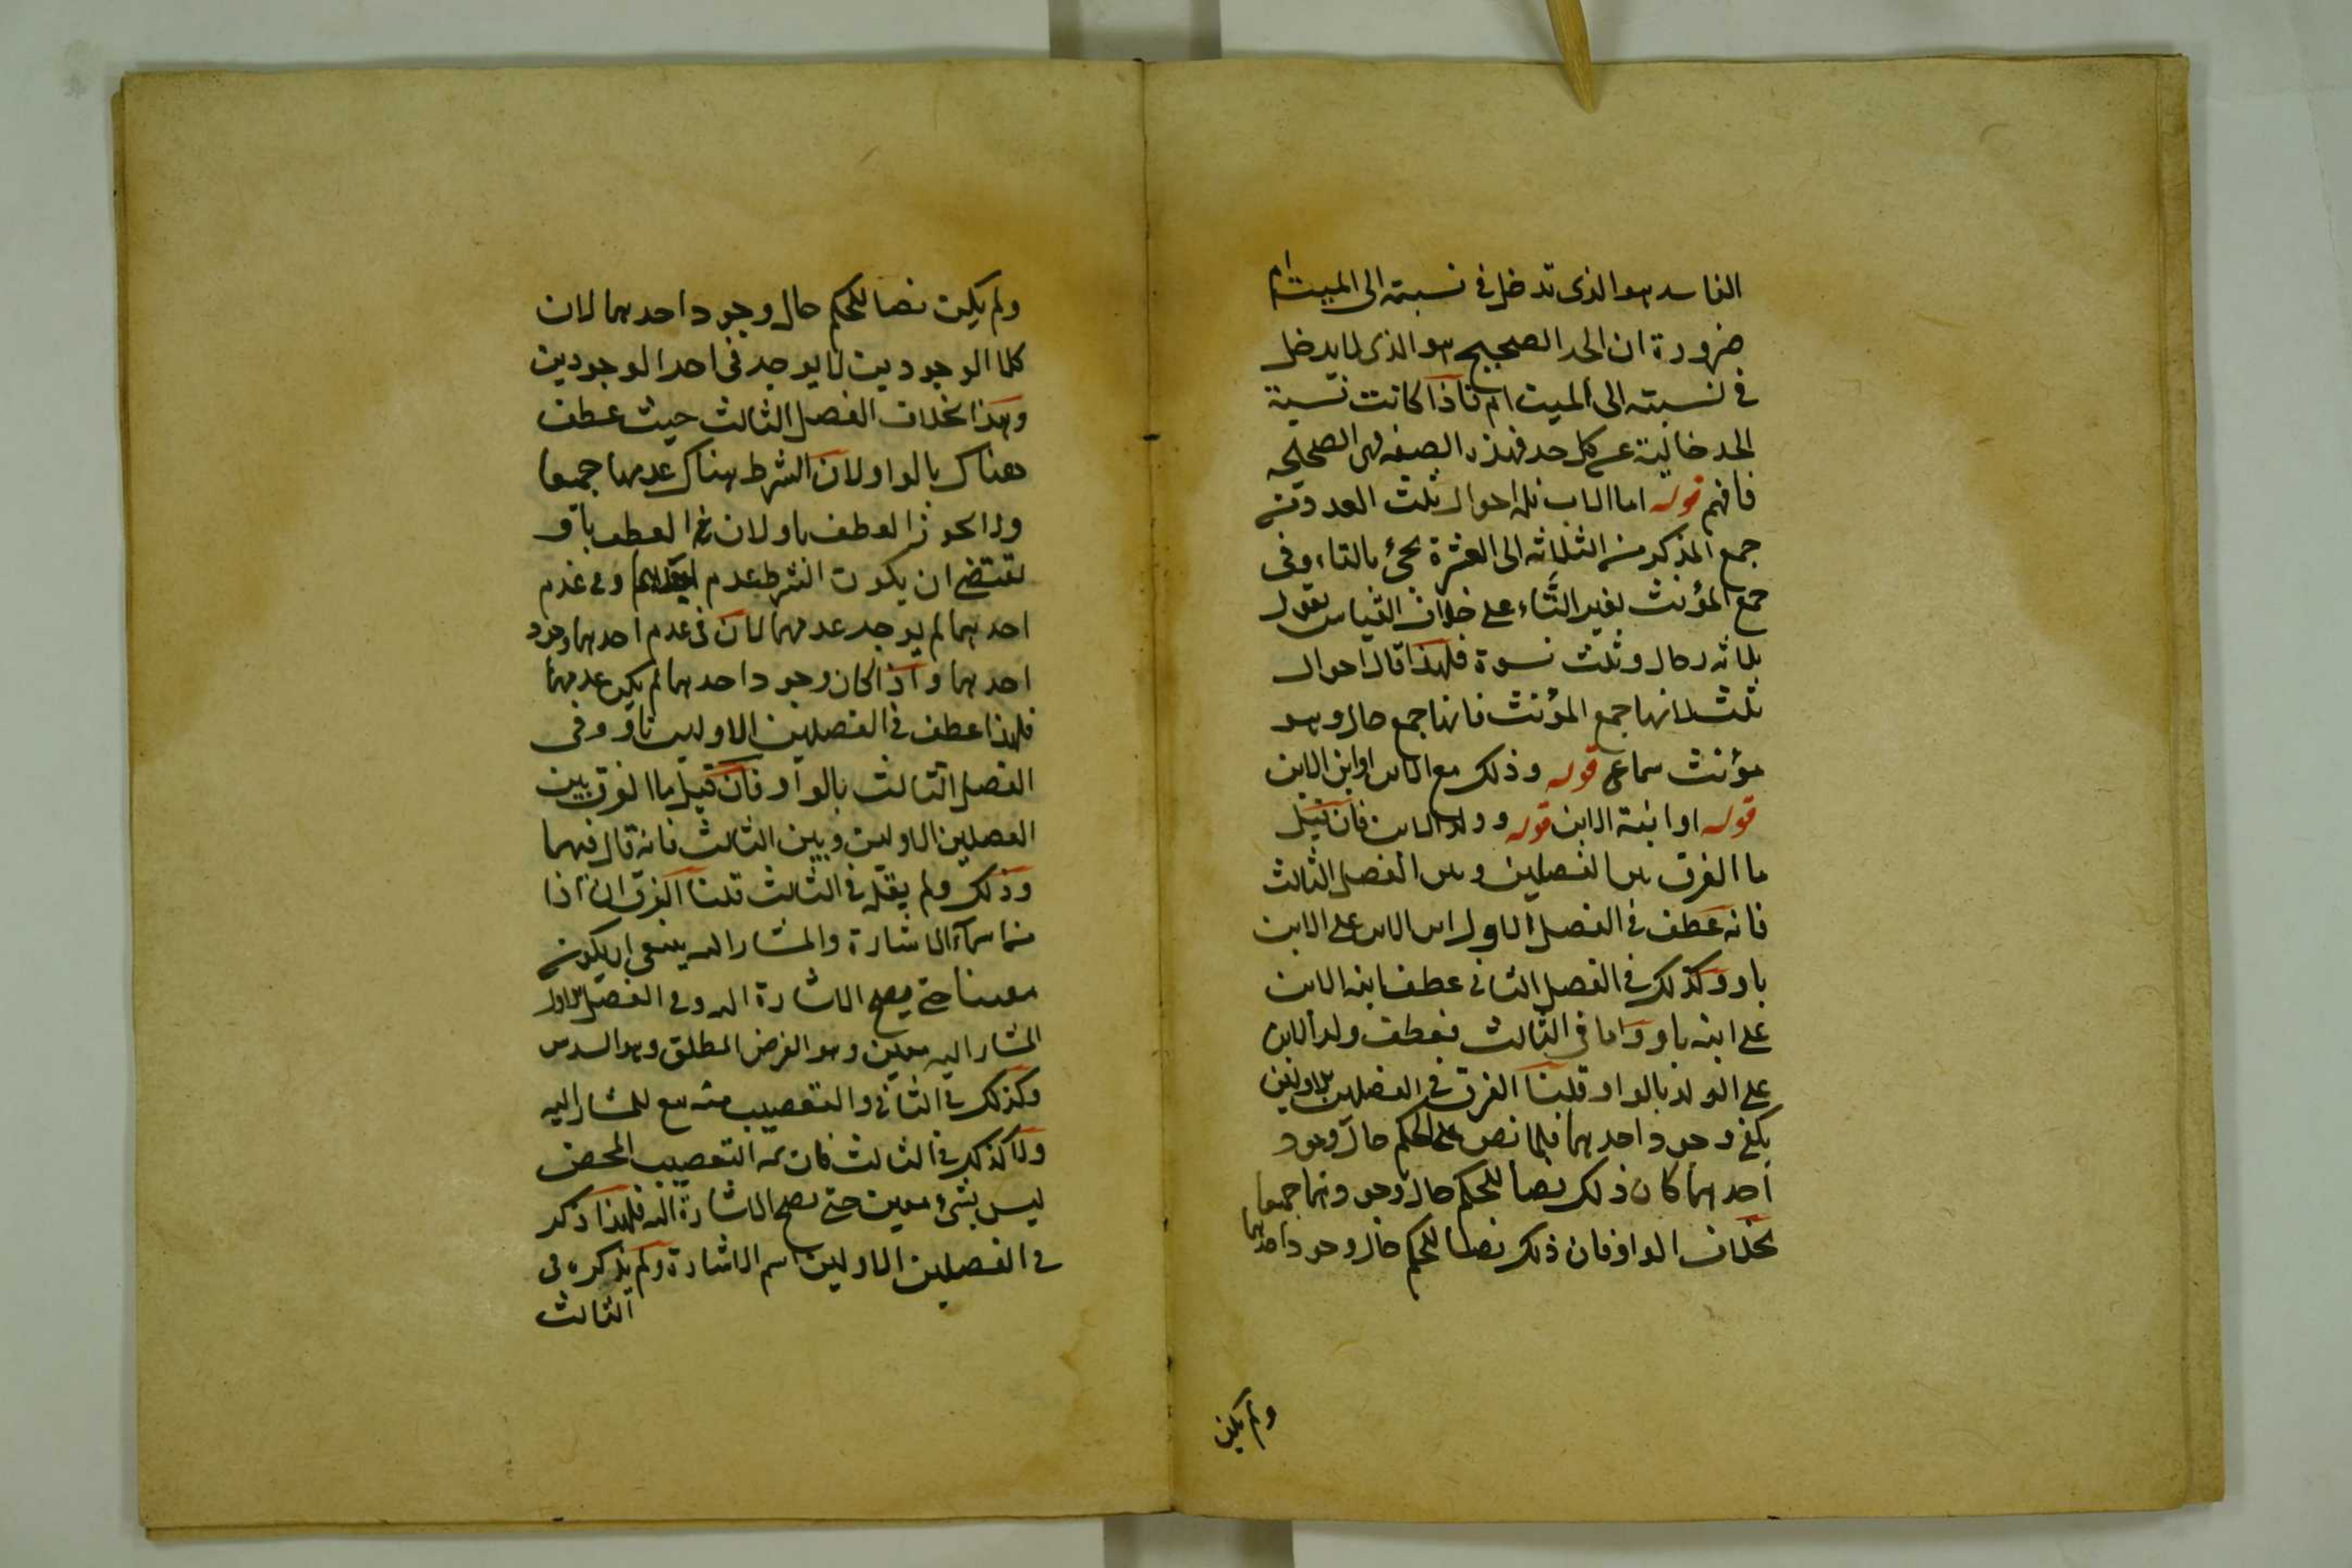 الفاسد هو الذى تدخل فى نسبته الى الميت ام
ضرورة ان الجد الصحيح هو الذى لا يدخل
فى نسبته الى الميت ام فاذا كانت نسبة
الجد خالية عن كل جد فهذه الصفة هى الصحيحة
فافهم قوله اما الاب فله احوال ثلث العدد من
جمع المذكر من الثلاثة الى العشرة يجئ بالتاء وفى
جمع المؤنث بغير التاء على خلاف القياس يقول
ثلاثة رجال وثلث نسوة فلهذا قال احوال
ثلث لانها جمع المؤنث فانها جمع حال وهو
مؤنث سماعى قوله وذلك مع الابن او ابن الابن
قوله او ابنة الابن قوله وولد الابن فان قيل
ما الفرق بين الفصلين وبين الفصل الثالث
فانه عطف فى الفصل الاول ابن الابن على الابن
باو وكذلك فى الفصل الثانى عطف ابنة الابن
على ابنة باو واما فى الثالث فعطف ولد الابن
على الولد بالواو قلنا الفرق فى الفصلين الاولين
يكفى وجود احدهما فلما نص على الحكم حال وجود
احدهما كان ذلك نصا للحكم حال وجودهما جميعا
بخلاف الواو فان ذلك نصا للحكم حال وجود احدهما
ولم يكن
ولم يكن نصا للحكم حال وجود احدهما لان
كلا الوجودين لا يوجد فى احد الوجودين
وهذا بخلاف الفصل الثالث حيث عطف
هناك بالواو لان الشرط هناك عدمهما جميعا
ولا يجوز العطف باو لان فى العطف باو
يقتضى ان يكون الشرط عدم احدهما وفى عدم
احدهما لم يوجد عدمهما لان فى عدم احدهما وجود
احدهما واذا كان وجود احدهما لم يكن عدمهما
فلهذا عطف فى الفصلين الاولين باو وفى
الفصل الثالث بالواو فان قيل ما الفرق بين
الفصلين الاولين وبين الثالث فانه قال فيهما
وذلك ولم يقل فى الثالث قلنا الفرق ان ذا
من اسماء الاشارة والمشار اليه ينبغى ان يكون
معينا حتى يصح الاشارة اليه وفى الفصل الاول
المشار اليه معين وهو الفرض المطلق وهو السدس
وكذلك فى الثانى والتعصيب منه مع المشار اليه
ولا كذلك فى الثالث فان ثمه التعصيب المحض
ليس بشئ معين حتى يصح الاشارة اليه فلهذا ذكر
فى الفصلين الاولين اسم الاشارة ولم يذكره فى
الثالث